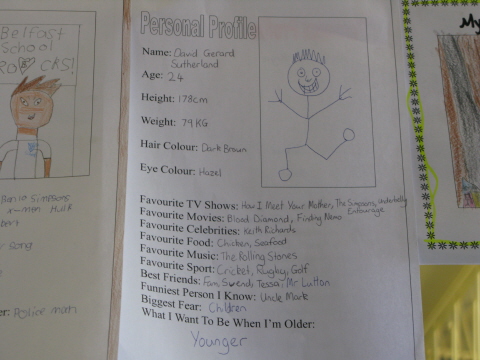 Belfast
School
RO CKS!
Simpsons
x-men Hulk
song
Police man
Personal Profile
Name: David Gerard
Sutherland
Age: 24
Height: 178cm
Weight: 79KG
Hair Colour: Dark Brown
Eye Colour: Hazel
Favourite TV Shows: How I Meet Your Mother, The Simpsons,
Entourage
Favourite Movies: Blood Diamond, Finding Nemo
Favourite Celebrities: Keith Richards
Favourite Food: Chicken, Seafood
Favourite Music: The Rolling Stones
Favourite Sport: Cricket, Rugby, Golf
Best Friends: Fam, Tessa, Mr Lutton
Funniest Person I Know: Uncle Mark
Biggest Fear: Children
What I Want To Be When I'm Older:
Younger
My